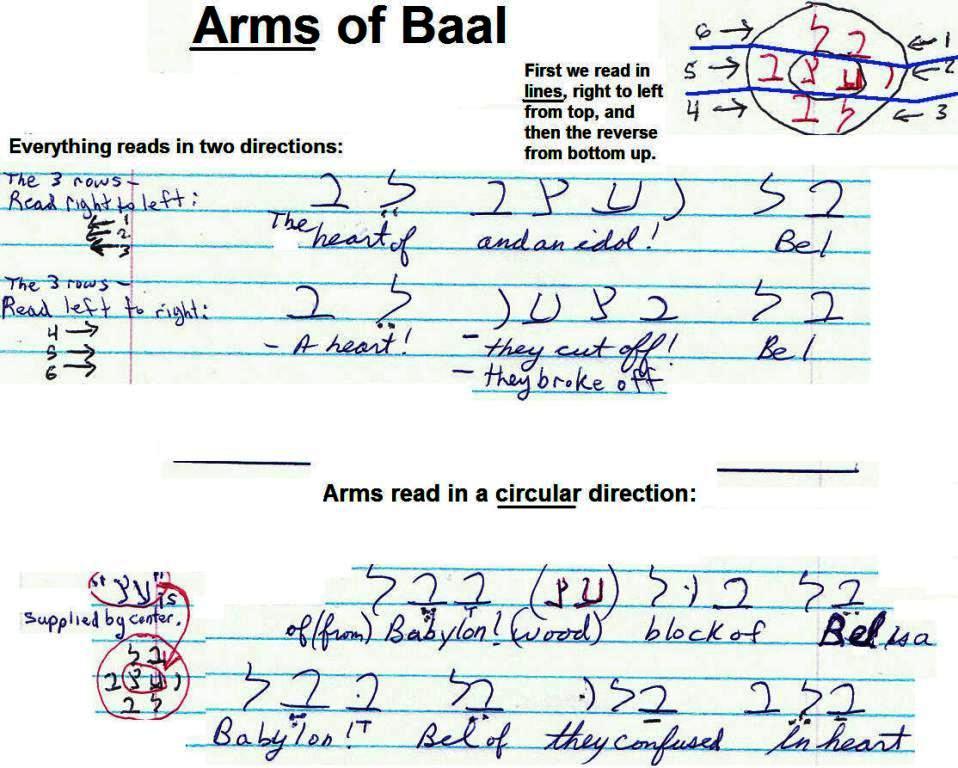 Arms of Baal
6 → ל ב ← 1
5 → ב צ ע ו ← 2
4 → ב ל ← 3
First we read in
lines, right to left
from top, and
then the reverse
from bottom up.
Everything reads in two directions:
The 3 rows-
Read right to left:
← 1
← 2
← 3
בל ועצב לב
The heart of and an idol! Bel
The 3 rows-
Read left to right:
4 →
5 →
6 →
בל בצעו לב
- A heart! - they cut off! Bel
- they broke off
Arms read in a circular direction:
"עץ" is
supplied by center.
ל ב
ב צ ע ו
ב ל
בל בול (עץ) בבל
of (from) Babylon! (wood) block of Bel is a
בלב בלו בל בבל
Babylon! Bel of they confused In heart